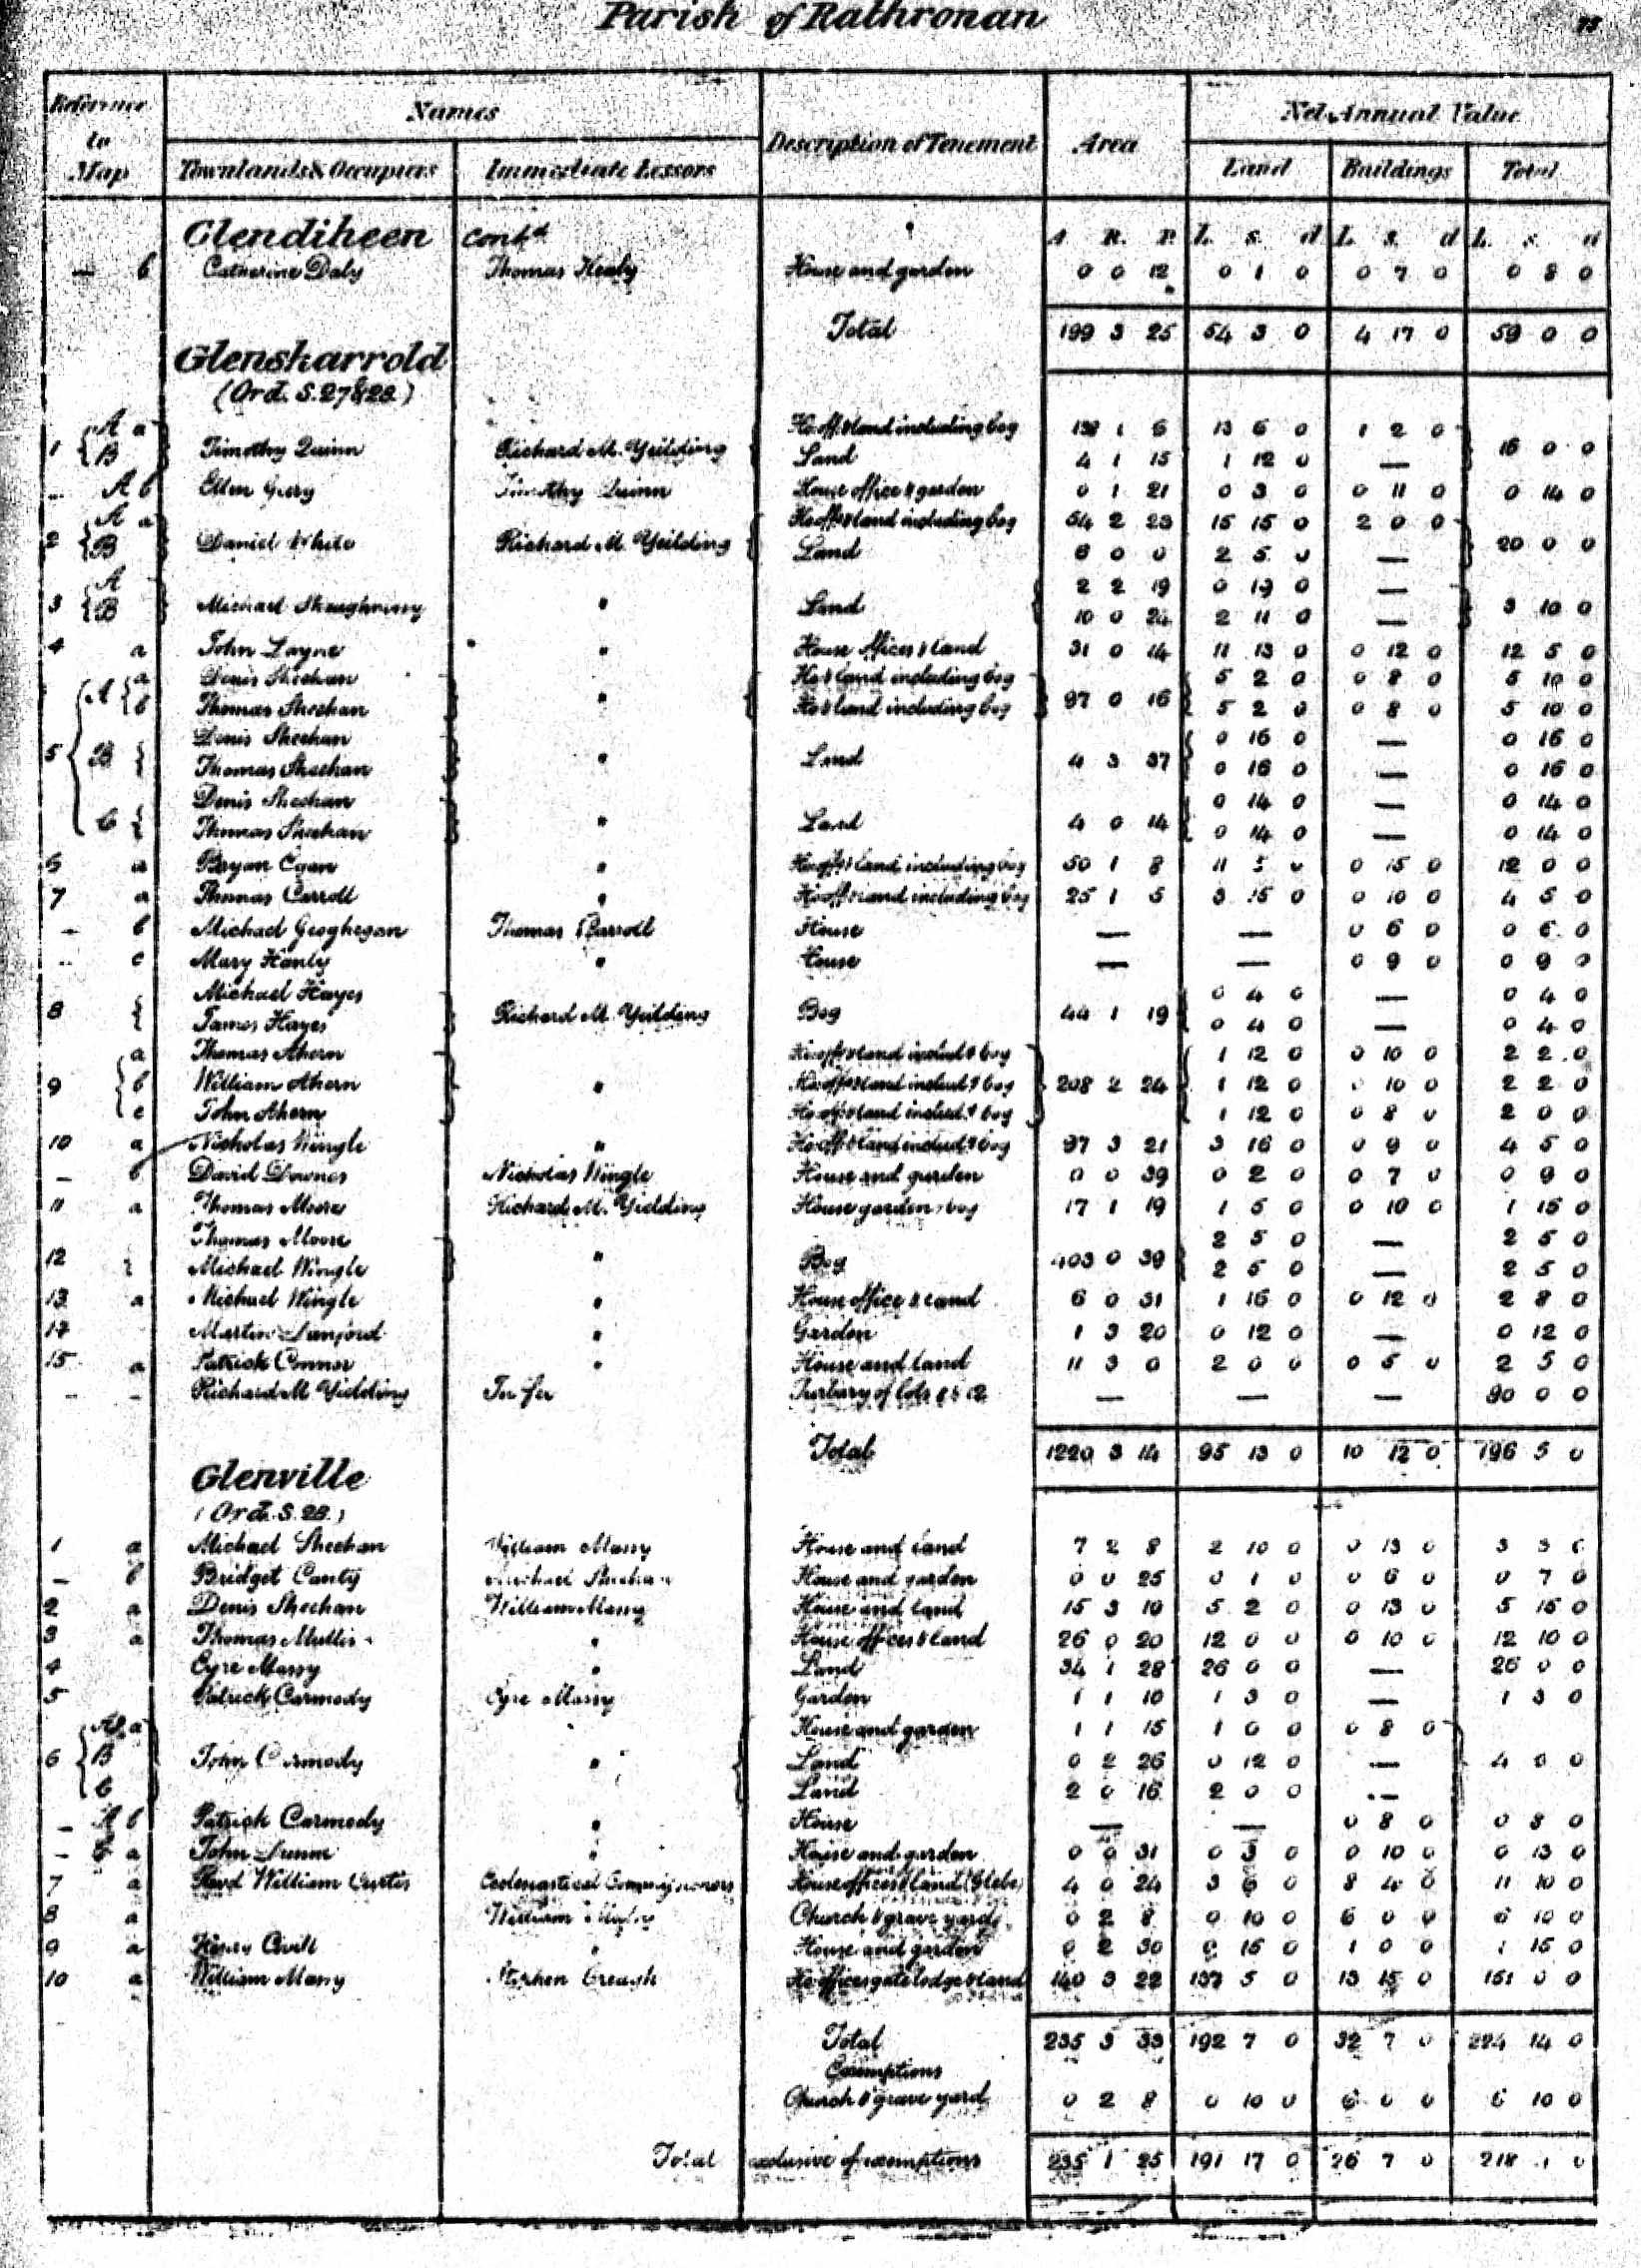 Parish of Rathronan
75
Reference to Map
Names
Townlands & Occupiers
Immediate Lessors
Description of Tenement
Area
Net Annual Value
Land
Buildings
Total
Glendiheen Contd
A R. P. L. s. d L. s. d L. s. d
— b Catherine Daly Thomas Healy House and garden 0 0 12 0 1 0 0 7 0 0 8 0
Total 199 3 25 54 3 0 4 17 0 59 0 0
Glensharrold
(Ord. S. 27 & 28)
1 A a Timothy Quinn Richard M. Yeilding Ho. offs & land including bog 138 1 6 13 6 0 1 2 0 16 0 0
B Land 4 1 15 1 12 0 —
A b Ellen Timothy Quinn House office & garden 0 1 21 0 3 0 0 11 0 0 14 0
2 A a Daniel White Richard M. Yeilding Ho. offs & land including bog 54 2 23 15 15 0 2 0 0 20 0 0
B Land 6 0 0 2 5 0 —
3 A Michael Shaughnessy " Land 2 2 19 0 19 0 — 3 10 0
B 10 0 24 2 11 0 —
4 a John Layne " House offices & land 31 0 14 11 13 0 0 12 0 12 5 0
5 A a Denis Sheehan " Ho & land including bog 97 0 16 5 2 0 0 8 0 5 10 0
b Thomas Sheehan Ho & land including bog 5 2 0 0 8 0 5 10 0
B Denis Sheehan " Land 4 3 37 0 16 0 — 0 16 0
Thomas Sheehan 0 16 0 — 0 16 0
C Denis Sheehan " Land 4 0 14 0 14 0 — 0 14 0
Thomas Sheehan 0 14 0 — 0 14 0
6 a Bryan Egan " Ho. offs & land including bog 50 1 8 11 5 0 0 15 0 12 0 0
7 a Thomas Carroll " Ho. offs & land including bog 25 1 5 3 15 0 0 10 0 4 5 0
— b Michael Geoghegan Thomas Carroll House — — 0 6 0 0 6 0
c Mary Hanly " House — — 0 9 0 0 9 0
8 Michael Hayes Richard M. Yeilding Bog 44 1 19 0 4 0 — 0 4 0
James Hayes 0 4 0 — 0 4 0
9 a Thomas Ahern " Ho. offs & land includg bog 208 2 24 1 12 0 0 10 0 2 2 0
b William Ahern Ho. offs & land includg bog 1 12 0 0 10 0 2 2 0
c John Ahern Ho. offs & land includg bog 1 12 0 0 8 0 2 0 0
10 a Nicholas Wingle " Ho. offs & land includg bog 97 3 21 3 16 0 0 9 0 4 5 0
— b David Downes Nicholas Wingle House and garden 0 0 39 0 2 0 0 7 0 0 9 0
11 a Thomas Moore Richard M. Yielding House garden & bog 17 1 19 1 5 0 0 10 0 1 15 0
12 Thomas Moore " Bog 403 0 39 2 5 0 — 2 5 0
Michael Wingle 2 5 0 — 2 5 0
13 a Michael Wingle " House office & land 6 0 31 1 16 0 0 12 0 2 8 0
14 Martin " Garden 1 3 20 0 12 0 — 0 12 0
15 a Patrick Connor " House and land 11 3 0 2 0 0 0 5 0 2 5 0
— — Richard M Yielding In fee Turbary of lots 8 & 12 — — — 90 0 0
Total 1220 3 14 95 13 0 10 12 0 196 5 0
Glenville
(Ord. S. 28.)
1 a Michael Sheehan William Massy House and land 7 2 8 2 10 0 0 13 0 3 3 0
— b Bridget Canty Michael Sheehan House and garden 0 0 25 0 1 0 0 6 0 0 7 0
2 a Denis Sheehan William Massy House and land 15 3 19 5 2 0 0 13 0 5 15 0
3 a Thomas Mullis " House offices & land 26 0 20 12 0 0 0 10 0 12 10 0
4 Eyre Massy " Land 34 1 28 26 0 0 — 26 0 0
5 Patrick Carmody Eyre Massy Garden 1 1 10 1 3 0 — 1 3 0
6 A a John Carmody " House and garden 1 1 15 1 0 0 0 8 0 4 0 0
B Land 0 2 26 0 12 0 —
C Land 2 0 16 2 0 0 —
— A b Patrick Carmody " House — — 0 8 0 0 8 0
— C a John " House and garden 0 0 31 0 3 0 0 10 0 0 13 0
7 a Revd William Curtis Ecclesiastical Commissioners House offices & land (Glebe) 4 0 24 3 6 0 8 4 0 11 10 0
8 a William Massy Church & grave yard 0 2 8 0 10 0 6 0 0 6 10 0
9 a Henry " House and garden 0 2 30 0 15 0 1 0 0 1 15 0
10 a William Massy Stephen Creagh Ho offices gate lodge & land 140 3 22 137 5 0 13 15 0 151 0 0
Total 235 3 33 192 7 0 32 7 0 224 14 0
Exemptions
Church & grave yard 0 2 8 0 10 0 6 0 0 6 10 0
Total exclusive of exemptions 235 1 25 191 17 0 26 7 0 218 0